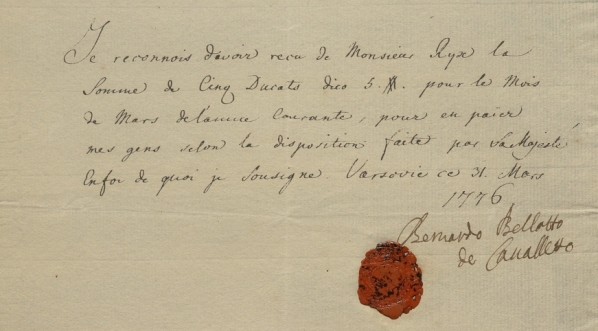 Je reconnois d'avoir recu de Monsieur Ryx la
Somme de Cinq Ducats dico 5 #. pour le Mois
de Mars de l'annee Courante, pour en paier
mes gens selon la disposition faite par sa Majesté
Enfoi de quoi je Sousigne. Varsovie ce 31. Mars
1776
Bernardo Bellotto
de Canalletto